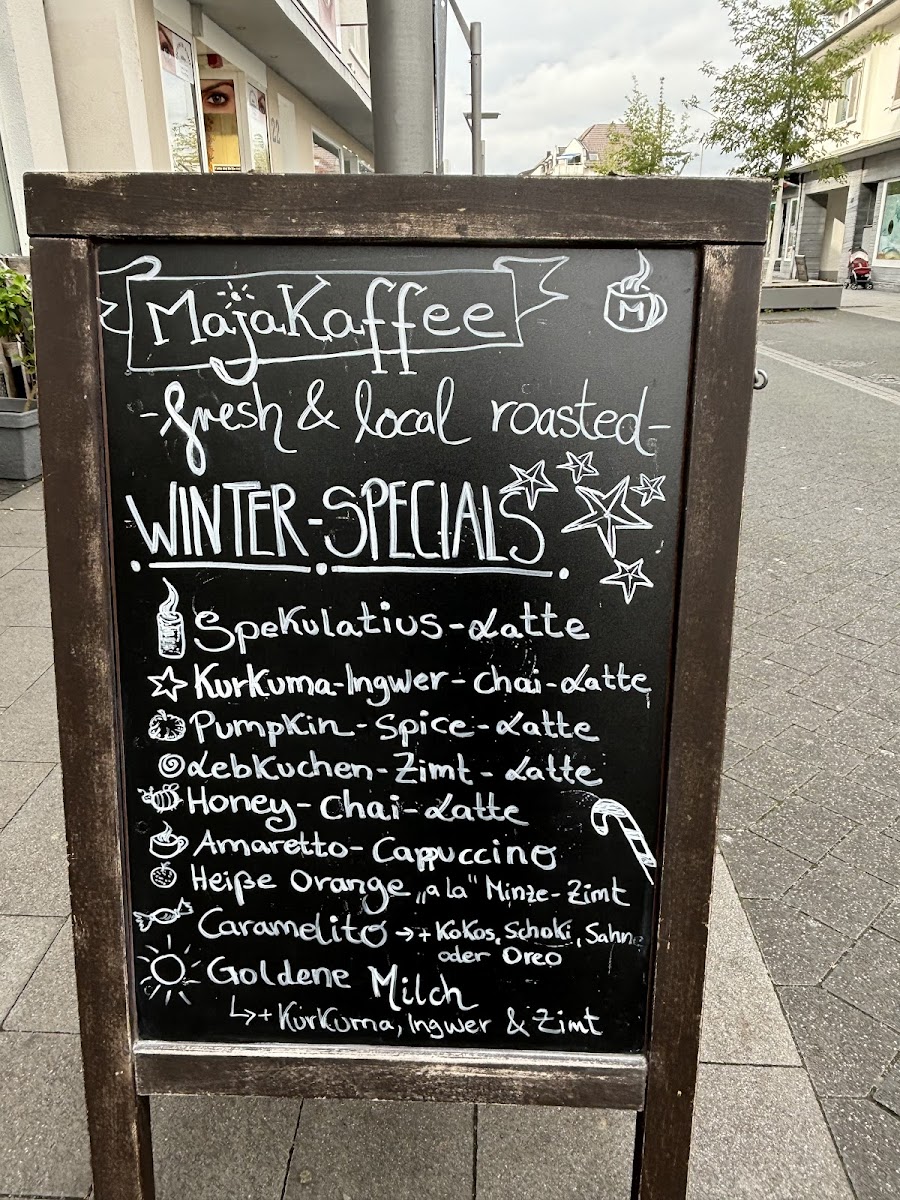 MajaKaffee
M
-fresh & local roasted-
WINTER-SPECIALS
Spekulatius-Latte
Kurkuma-Ingwer-Chai-Latte
Pumpkin-Spice-Latte
Lebkuchen-Zimt-Latte
Honey-Chai-Latte
Amaretto-Cappuccino
Heiße Orange „a la" Minze-Zimt
Caramelito →+ Kokos, Schoki, Sahne
oder Oreo
Goldene Milch
↳+ Kurkuma, Ingwer & Zimt